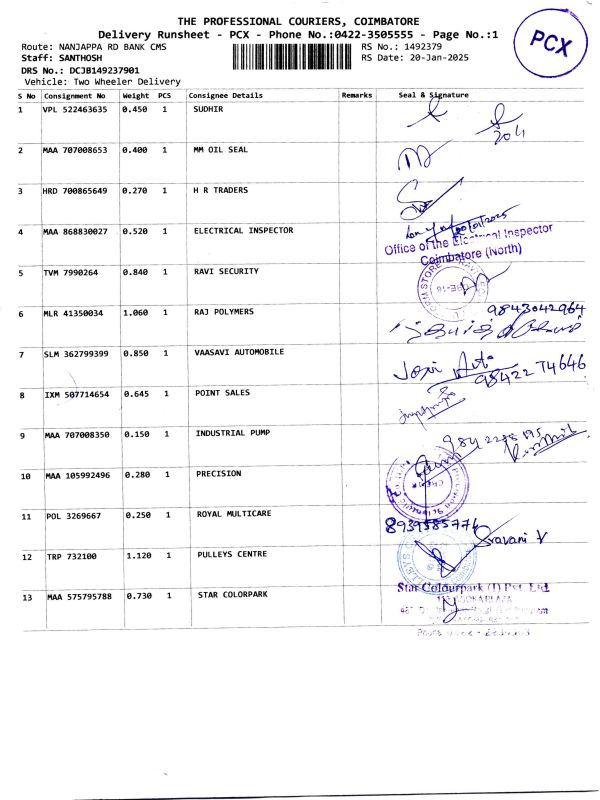 THE PROFESSIONAL COURIERS, COIMBATORE
Delivery Runsheet - PCX - Phone No.:0422-3505555 - Page No.:1
PCX
Route: NANJAPPA RD BANK CMS
RS No.: 1492379
Staff: SANTHOSH
RS Date: 20-Jan-2025
DRS No.: DCJB149237901
Vehicle: Two Wheeler Delivery
S No Consignment No Weight PCS Consignee Details Remarks Seal & Signature
1 VPL 522463635 0.450 1 SUDHIR
2 MAA 707008653 0.400 1 MM OIL SEAL
3 HRD 700865649 0.270 1 H R TRADERS
4 MAA 868830027 0.520 1 ELECTRICAL INSPECTOR
Office of the Electrical Inspector
Coimbatore (North)
5 TVM 7990264 0.840 1 RAVI SECURITY
6 MLR 41350034 1.060 1 RAJ POLYMERS 9843042964
7 SLM 362799399 0.850 1 VAASAVI AUTOMOBILE
98422 74646
8 IXM 507714654 0.645 1 POINT SALES
9 MAA 707008350 0.150 1 INDUSTRIAL PUMP
10 MAA 105992496 0.280 1 PRECISION
11 POL 3269667 0.250 1 ROYAL MULTICARE 8939585774
Sravani V
12 TRP 732100 1.120 1 PULLEYS CENTRE
13 MAA 575795788 0.730 1 STAR COLORPARK
Star Colourpark (I) Pvt. Ltd